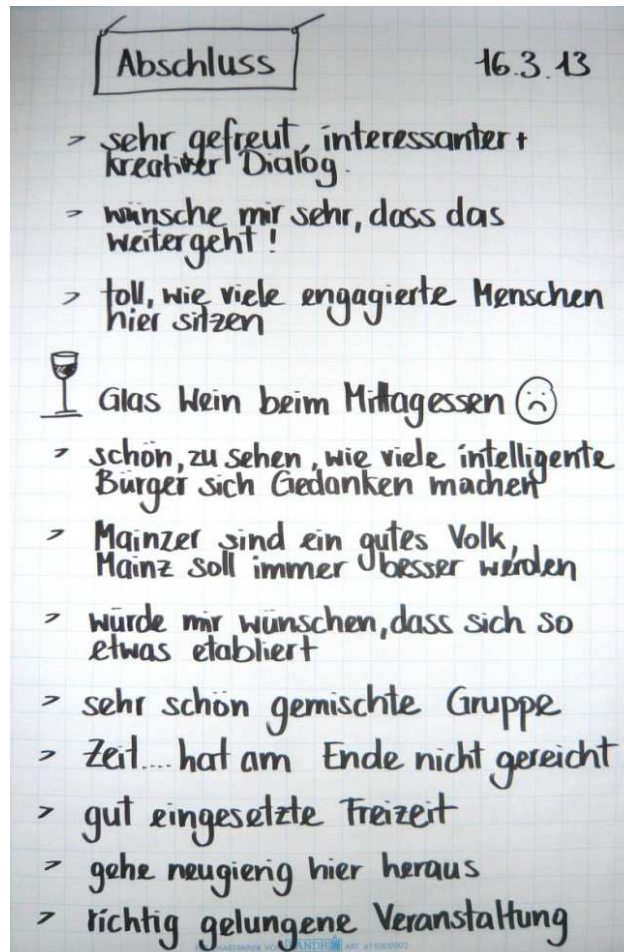 Abschluss 16.3.13
> sehr gefreut, interessanter +
kreativer Dialog.
> wünsche mir sehr, dass das
weitergeht!
> toll, wie viele engagierte Menschen
hier sitzen
Glas Wein beim Mittagessen
> schön, zu sehen, wie viele intelligente
Bürger sich Gedanken machen
> Mainzer sind ein gutes Volk,
Mainz soll immer besser werden
> würde mir wünschen, dass sich so
etwas etabliert
> sehr schön gemischte Gruppe
> Zeit.... hat am Ende nicht gereicht
> gut eingesetzte Freizeit
> gehe neugierig hier heraus
> richtig gelungene Veranstaltung